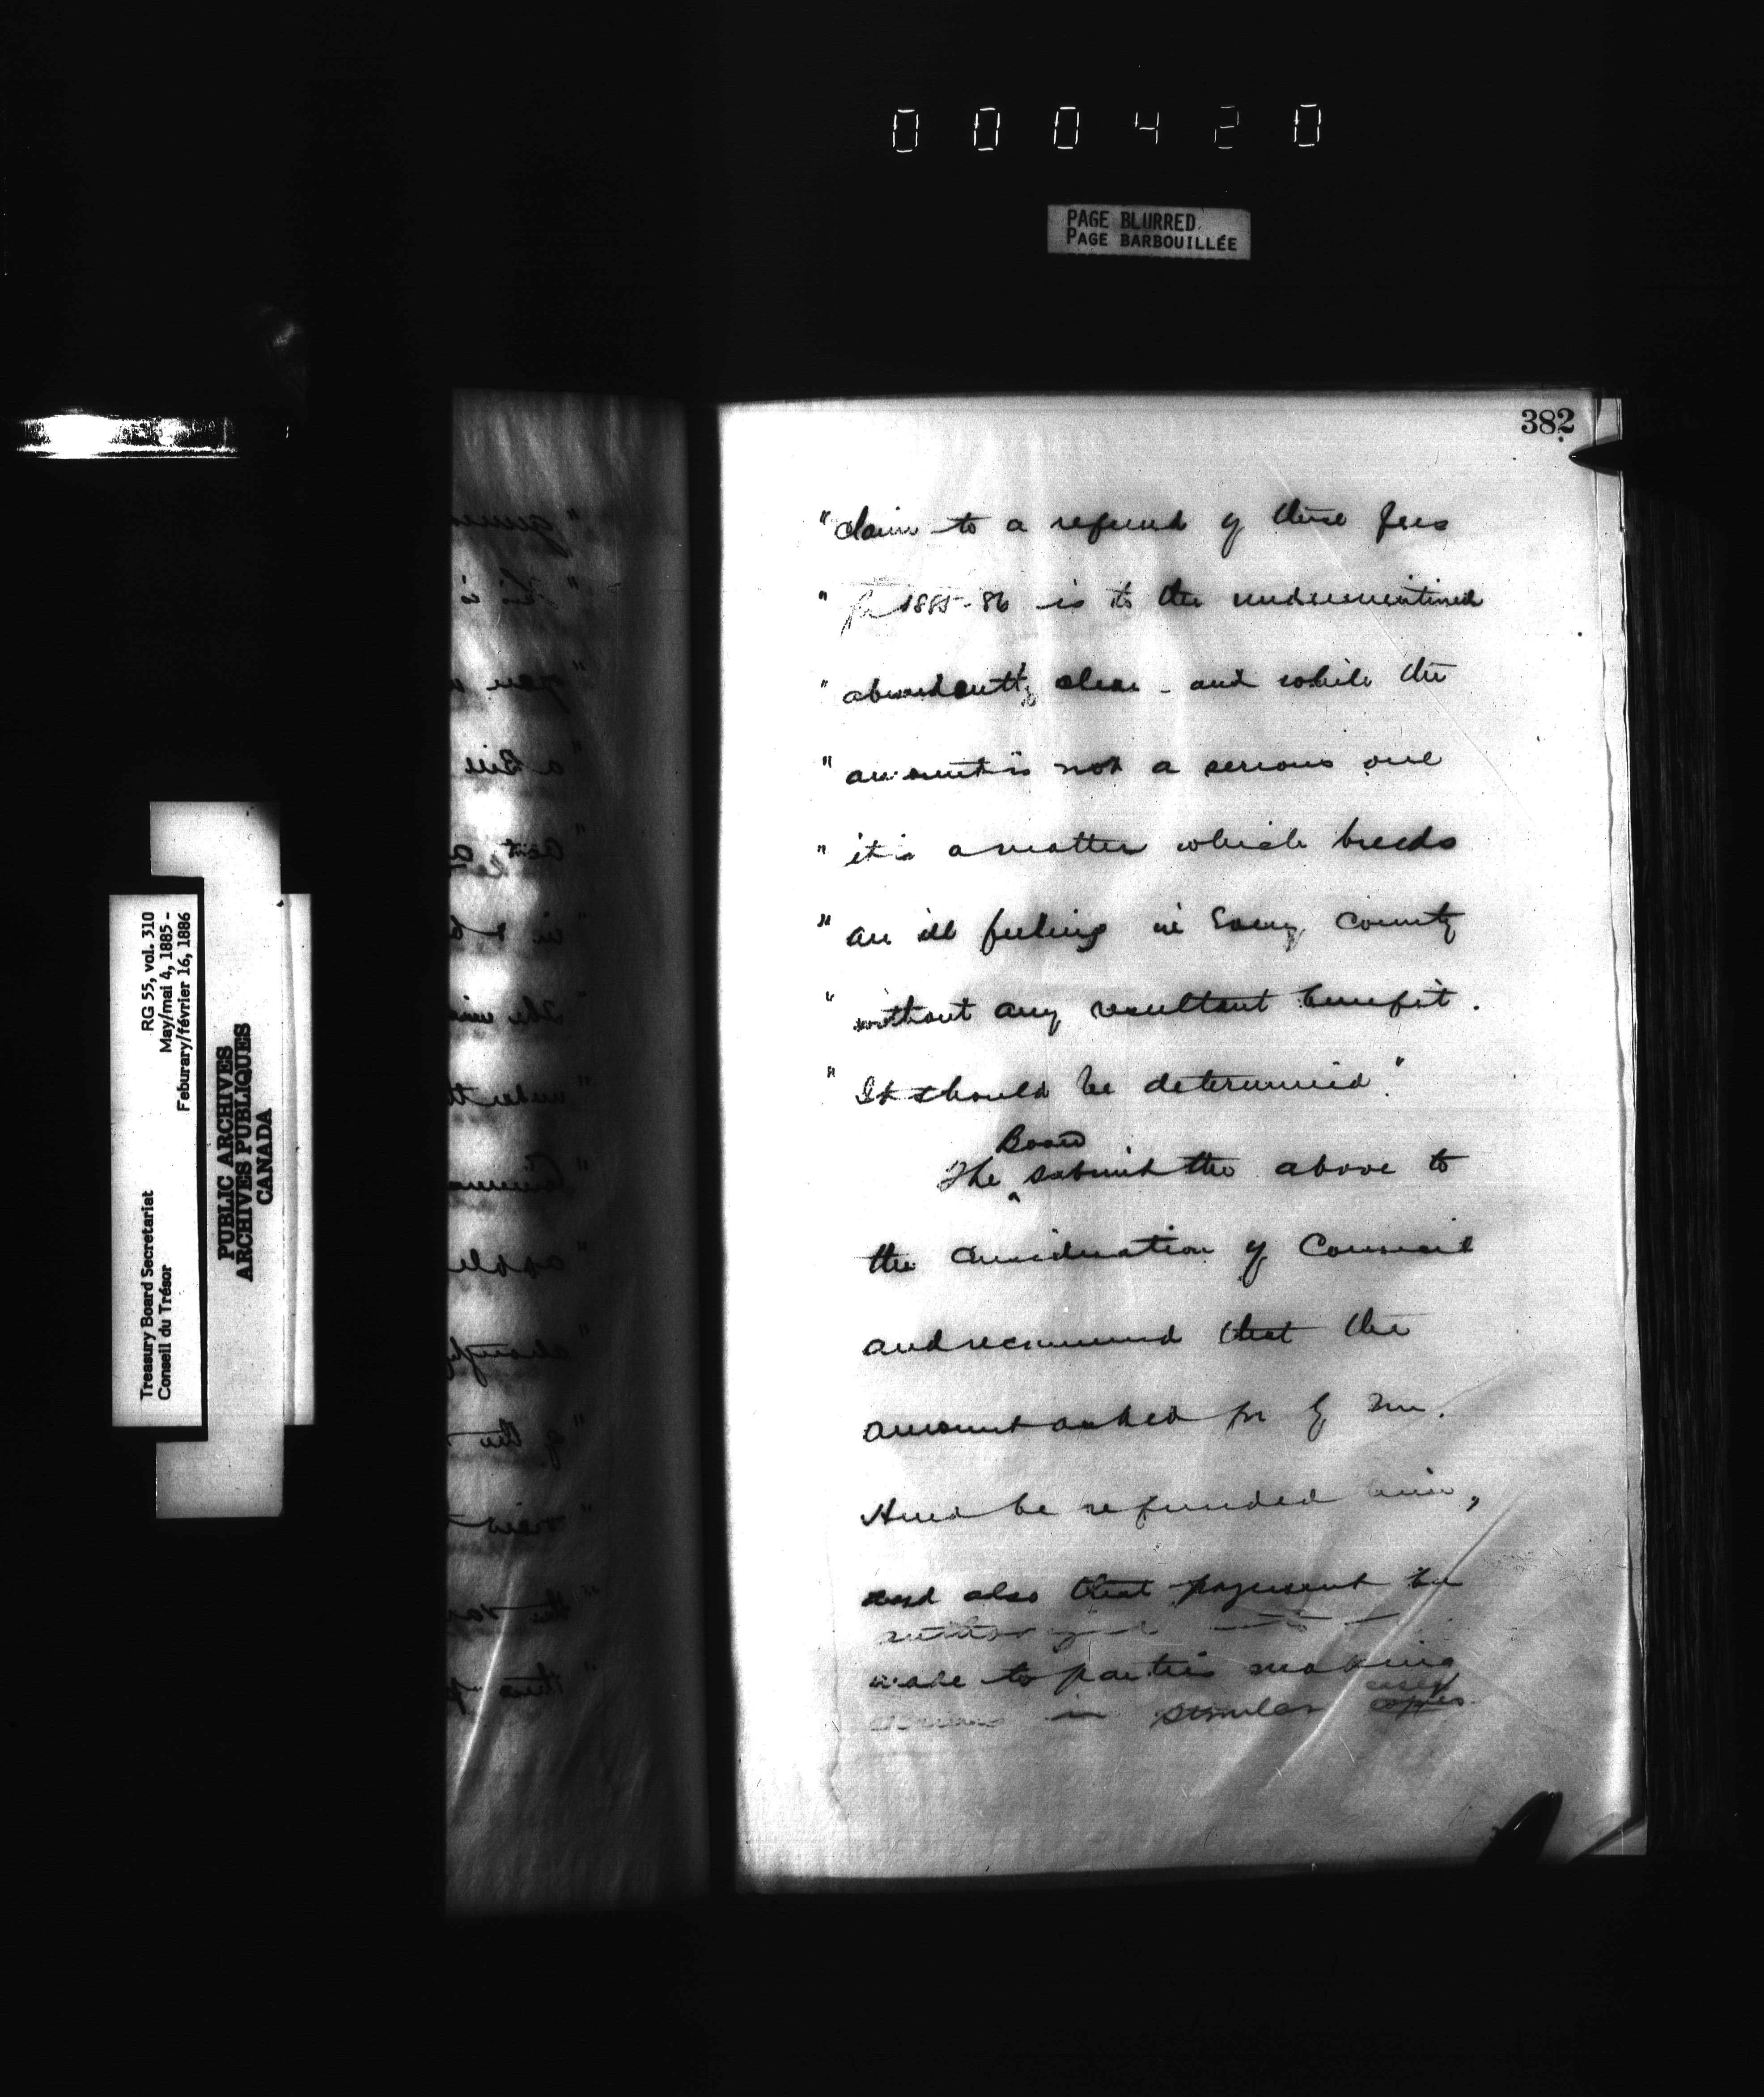 000420
PAGE BLURRED
PAGE BARBOUILLÉE
382
"claim to a refund of these fees
" for 1885-86 is to the undermentioned
" abundantly clear - and while the
" amount is not a serious one
" it is a matter which breeds
" an ill feeling in every county
" without any resultant benefit.
" It should be determined"
Board
The ‸ submit the above to
the consideration of Council
and recommend that the
amount asked for by Mr.
Hurd be refunded him,
and also that payment be
authorized
made to parties making
in similar cases
RG 55, vol. 310
May/mai 4, 1885 -
Feburary/février 16, 1886
Treasury Board Secretariat
Conseil du Trésor
PUBLIC ARCHIVES
ARCHIVES PUBLIQUES
CANADA